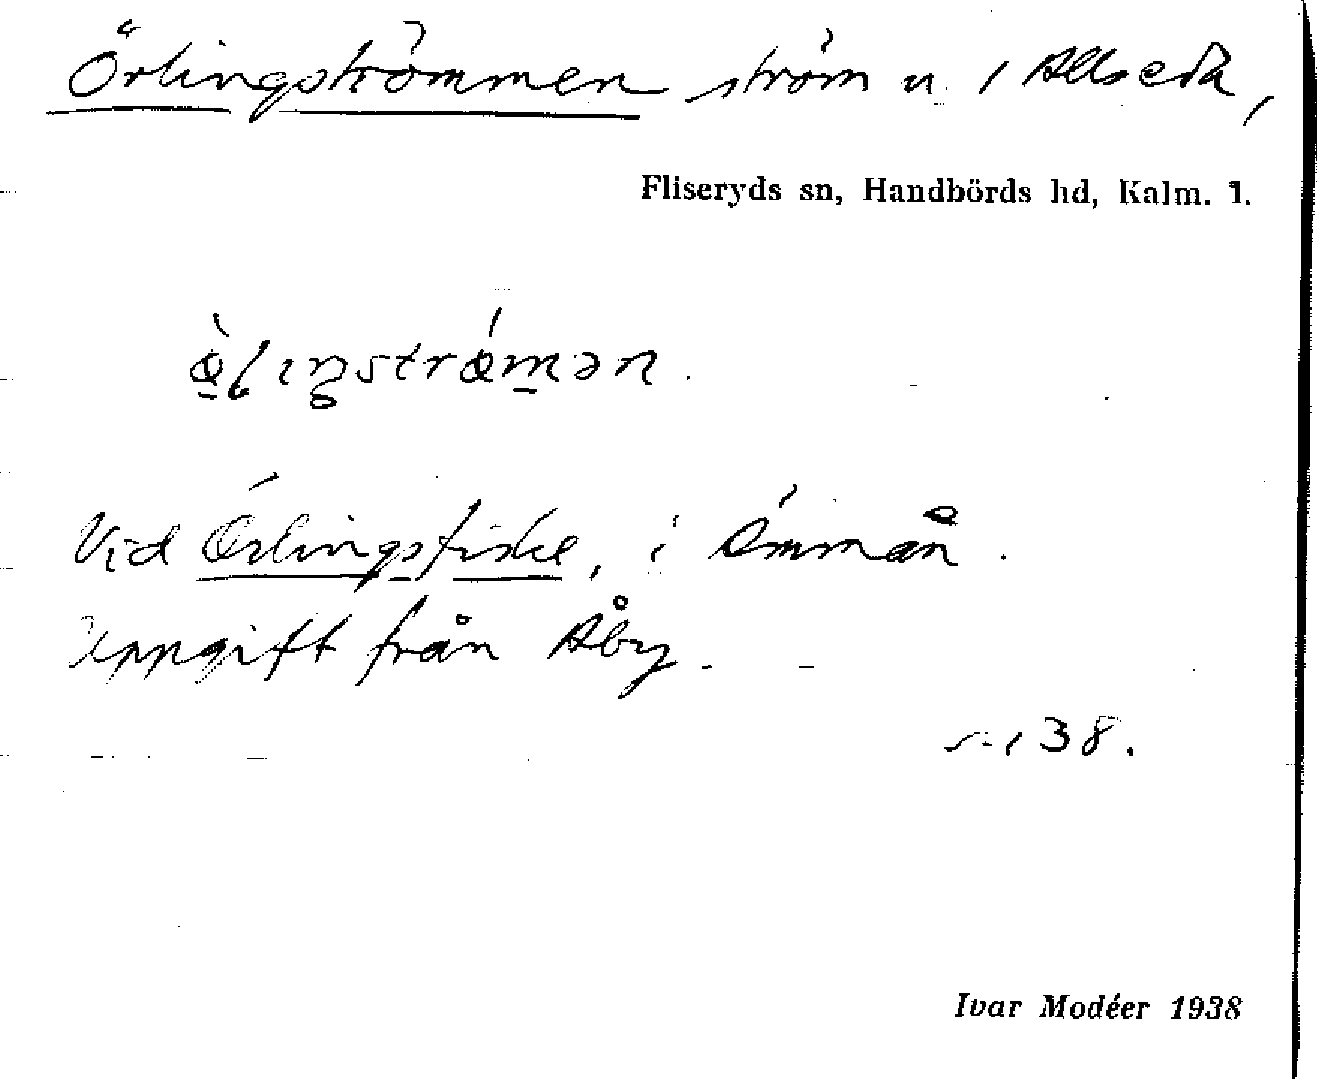 Örlingströmmen ström u. / Allseda,
Fliseryds sn, Handbörds hd, Kalm. l.
Vid Örlingsfiske, i Ämmån.
Uppgift från Åby.
38.
Ivar Modéer 1938